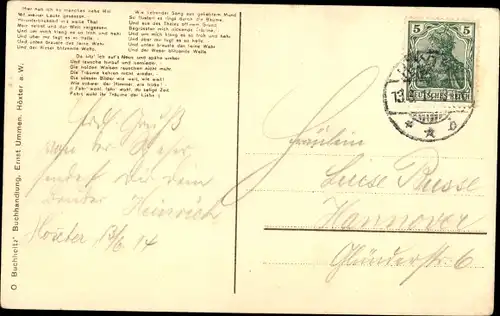 Hier hab' ich so manches liebe Mal
Mit meiner Laute gesessen,
Hinunterblickend in's weite Thal
Mein selbst und der Welt vergessen.
Und um mich klang es so froh und hehr
Und über mir tagt es so helle,
Und unten brausen das ferne Wehr
Und der Weser blitzende Welle.
Wie liebender Sang aus geliebtem Mund
So flüstert es rings durch die Bäume,
Und aus des Thales off'nem Grund
Begrüssen mich nickende Träume.
Und um mich klang es so froh und hehr
Und über mir tagt es so helle,
Und unten brausen das ferne Wehr
Und der Weser blitzende Welle.
Da sitz' ich auf's Neue und spähe umher
Und lausche hinauf und hernieder.
Die holden Weisen rauschen nicht mehr,
Die Träume kehren nicht wieder.
Die süssen Bilder wie weit, wie weit!
Wie schwer der Himmel, wie trübe!
Fahr' wohl, fahr' wohl, du selige Zeit
Fahrt wohl ihr Träume der Liebe!
O Buchholtz' Buchhandlung, Ernst Ummen, Höxter a. W.
5 5
DEUTSCHES REICH
13.
* ★ b
Gruß
von der Weser
sendet Dir Dein
Heinrich
Höxter 13/6 14
Fräulein
Luise Busse
Hannover
Gründerstr. 6